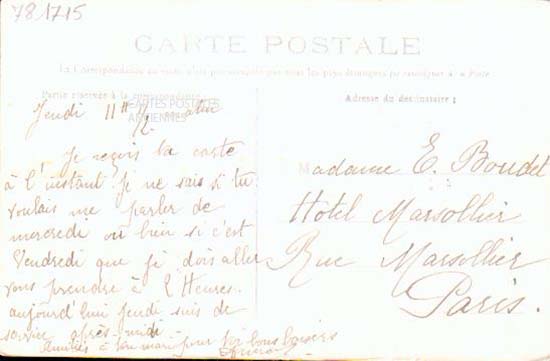 78 1715
CARTE POSTALE
La Correspondance au recto n'est pas acceptée par tous les pays étrangers (se renseigner à la Poste)
Partie réservée à la correspondance
Adresse du destinataire :
CARTES POSTALES
ANCIENNES
Jeudi 11H 1/2 matin
Je reçois la carte
à l'instant je ne sais si tu
voulais me parler de
mercredi ou bien si c'est
Vendredi que je dois aller
vous prendre à 2 Heures.
aujourd'hui jeudi suis de
service après-midi -
Amitiés = ton mari pour bons baisers
Madame E. Boudet
Hôtel Marsollier
Rue Marsollier
Paris.